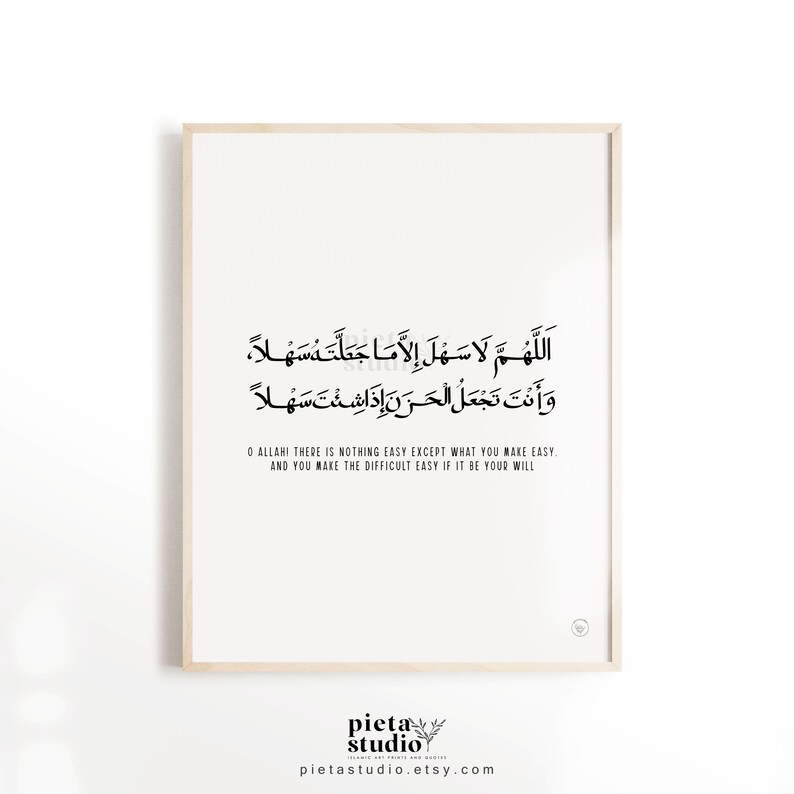 اَللَّهُمَّ لَا سَهْلَ إِلاَّ مَا جَعَلْتَهُ سَهْلاً،
وَأَنْتَ تَجْعَلُ الْحَزَنَ إِذَا شِئْتَ سَهْلاً
O ALLAH! THERE IS NOTHING EASY EXCEPT WHAT YOU MAKE EASY.
AND YOU MAKE THE DIFFICULT EASY IF IT BE YOUR WILL
pieta
studio
pieta
studio
ISLAMIC ART PRINTS AND QUOTES
pietastudio.etsy.com